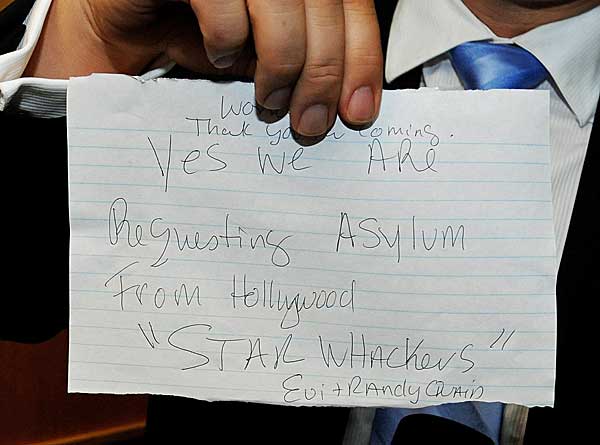 Thank you coming.
Yes We ARe
Requesting Asylum
From Hollywood
"STAR WHACKeRs"
Evi + RANDy QUAID